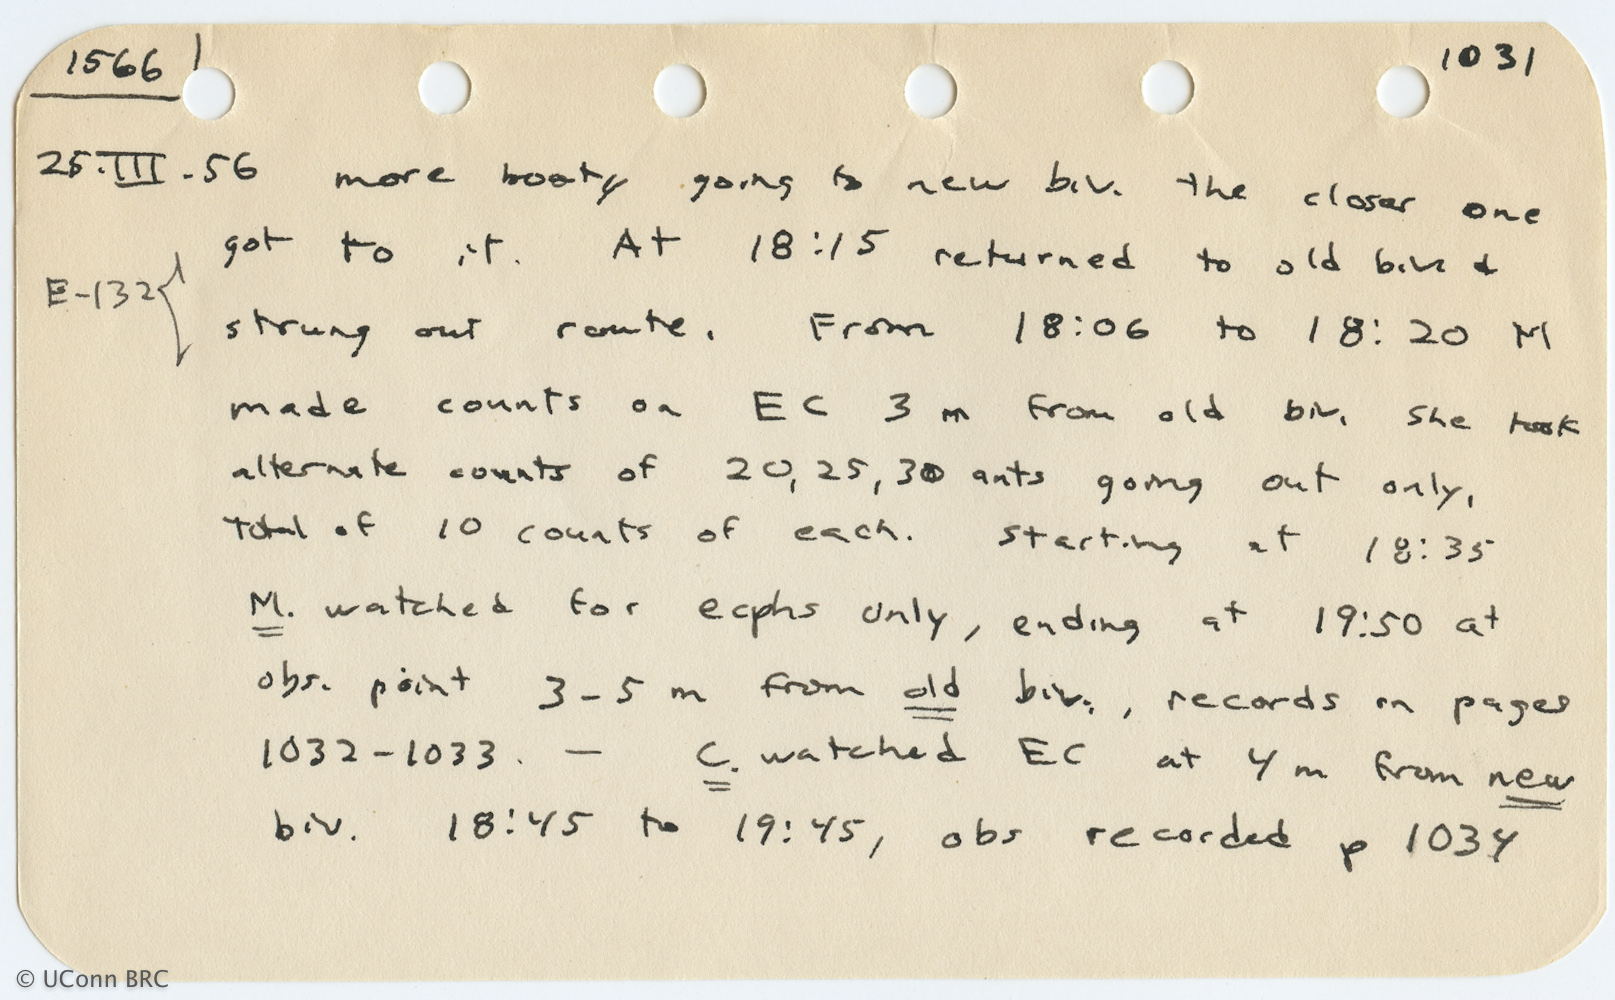 1566 1031
25.III.56 more booty going to new biv. the closer one
got to it. At 18:15 returned to old biv &
E-132 strung out route. From 18:06 to 18:20 M
made counts on EC 3 m from old biv. She took
alternate counts of 20, 25, 30 ants going out only,
total of 10 counts of each. Starting at 18:35
M. watched for ecphs only, ending at 19:50 at
obs. point 3-5 m from old biv., records on pages
1032-1033. — C. watched EC at 4 m from new
biv. 18:45 to 19:45, obs recorded p 1034
© UConn BRC